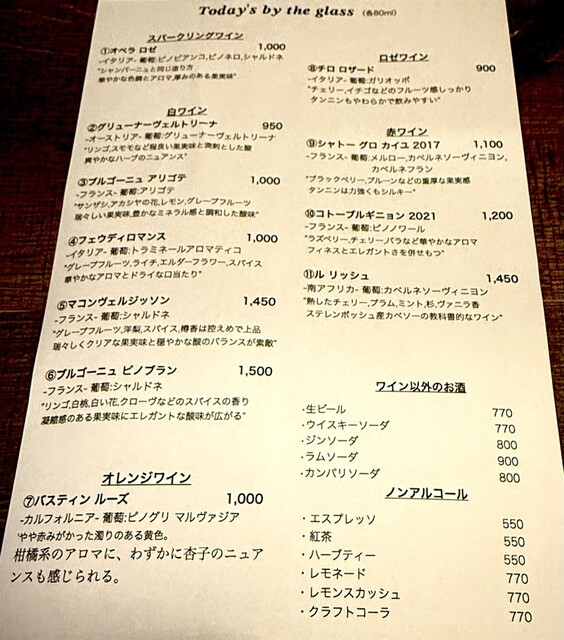 Today's by the glass (各80ml)
スパークリングワイン
①オペラ ロゼ 1,000
-イタリア- 葡萄:ピノビアンコ,ピノネロ,シャルドネ
"シャンパーニュと同じ造り方
華やかな色調とアロマ,厚みのある果実味"
白ワイン
②グリューナーヴェルトリーナ 950
-オーストリア- 葡萄:グリューナーヴェルトリーナ
"リンゴ,スモモなど程良い果実味と溌剌とした酸
爽やかなハーブのニュアンス"
③ブルゴーニュ アリゴテ 1,000
-フランス- 葡萄:アリゴテ
"サンザシ,アカシヤの花,レモン,グレープフルーツ
瑞々しい果実味,豊かなミネラル感と調和した酸味"
④フェウディロマンス 1,000
-イタリア- 葡萄:トラミネールアロマティコ
"グレープフルーツ,ライチ,エルダーフラワー,スパイス
華やかなアロマとドライな口当たり"
⑤マコンヴェルジッソン 1,450
-フランス- 葡萄:シャルドネ
"グレープフルーツ,洋梨,スパイス,樽香は控えめで上品
瑞々しくクリアな果実味と穏やかな酸のバランスが素敵"
⑥ブルゴーニュ ピノブラン 1,500
-フランス- 葡萄:シャルドネ
"リンゴ,白桃,白い花,クローヴなどのスパイスの香り
凝縮感のある果実味にエレガントな酸味が広がる"
オレンジワイン
⑦バスティン ルーズ 1,000
-カルフォルニア- 葡萄:ピノグリ マルヴァジア
'やや赤みがかった濁りのある黄色。
柑橘系のアロマに、わずかに杏子のニュア
ンスも感じられる。
ロゼワイン
⑧チロ ロザード 900
-イタリア- 葡萄:ガリオッポ
"チェリー,イチゴなどのフルーツ感しっかり
タンニンもやわらかで飲みやすい"
赤ワイン
⑨シャトー グロ カイユ 2017 1,100
-フランス- 葡萄:メルロー,カベルネソーヴィニヨン,
カベルネフラン
"ブラックベリー,プルーンなどの重厚な果実感
タンニンは力強くもシルキー"
⑩コトーブルギニョン 2021 1,200
-フランス- 葡萄:ピノノワール
"ラズベリー,チェリー,バラなど華やかなアロマ
フィネスとエレガントさを併せもつ"
⑪ル リッシュ 1,450
-南アフリカ- 葡萄:カベルネソーヴィニヨン
"熟したチェリー,プラム,ミント,杉,ヴァニラ香
ステレンボッシュ産カベソーの教科書的なワイン"
ワイン以外のお酒
・生ビール 770
・ウイスキーソーダ 770
・ジンソーダ 800
・ラムソーダ 900
・カンパリソーダ 800
ノンアルコール
・エスプレッソ 550
・紅茶 550
・ハーブティー 550
・レモネード 770
・レモンスカッシュ 770
・クラフトコーラ 770